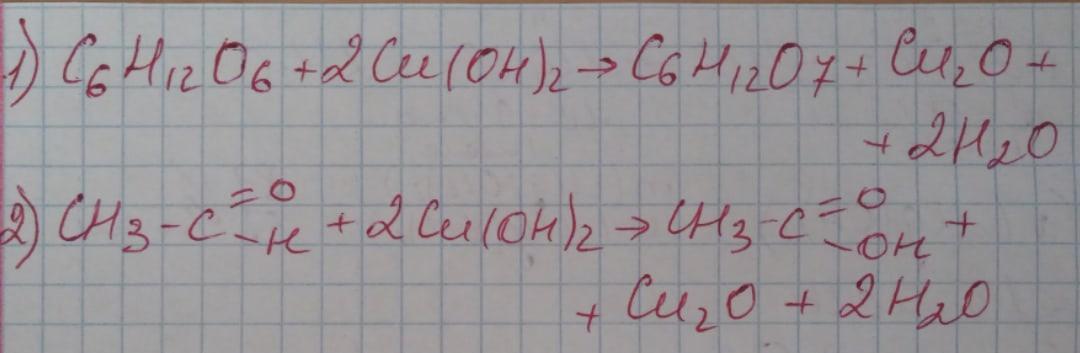 1) C₆H₁₂O₆ + 2Cu(OH)₂ → C₆H₁₂O₇ + Cu₂O +
+ 2H₂O
2) CH₃-C=O-H + 2Cu(OH)₂ → CH₃-C=O-OH +
+ Cu₂O + 2H₂O